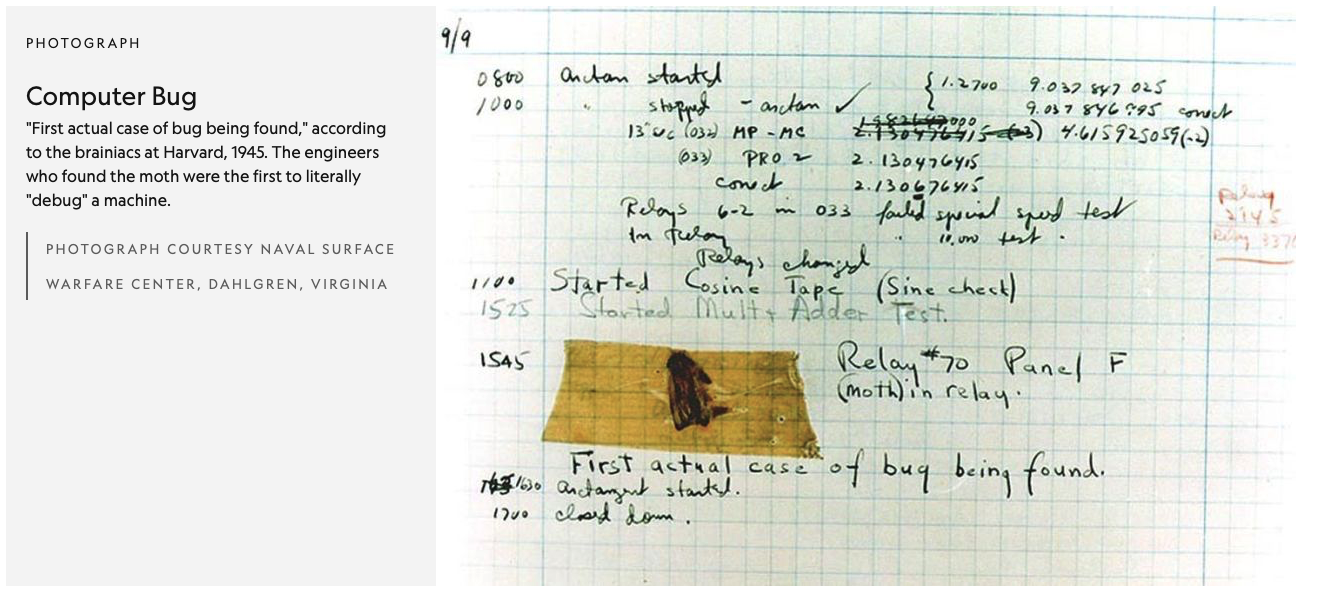 PHOTOGRAPH
Computer Bug
"First actual case of bug being found," according
to the brainiacs at Harvard, 1945. The engineers
who found the moth were the first to literally
"debug" a machine.
PHOTOGRAPH COURTESY NAVAL SURFACE
WARFARE CENTER, DAHLGREN, VIRGINIA
9/9
0800 arctan started
1000 " stopped - arctan ✓
{ 1.2700 9.037 847 025
9.037 846 995 correct
13" uc (032) MP - MC 4.615925059(-2)
(033) PRO 2 2.130476415
correct 2.130676415
Relays 6-2 in 033 failed special speed test
In Relay " 10,000 test.
Relays changed
1100 Started Cosine Tape (Sine check)
1525 Started Mult + Adder Test.
1545 Relay #70 Panel F
(moth) in relay.
First actual case of bug being found.
1630 arctangent started.
1700 closed down.
Relay
2145
Relay